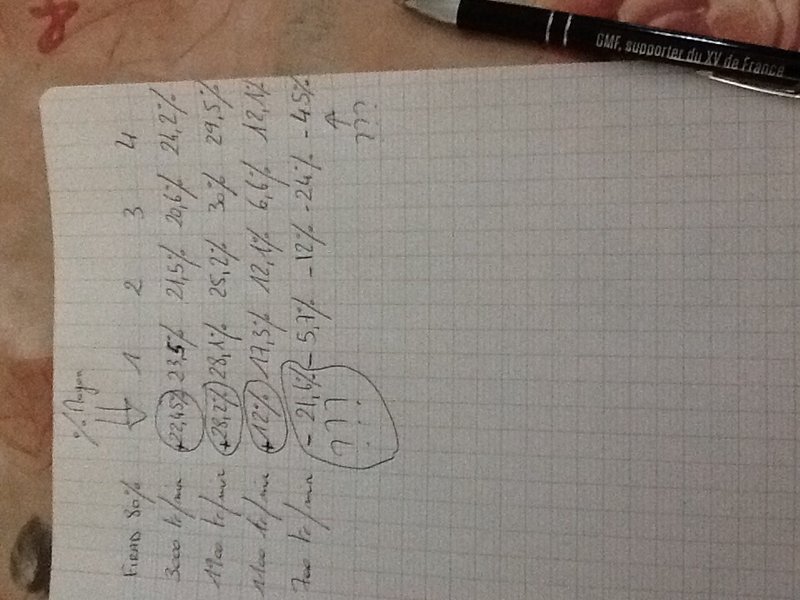 GMF, supporter du XV de France
% Moyen
FIRAD 80% ⇓ 1 2 3 4
3000 tr/min +22,45% 23,5% 21,5% 20,6% 24,2%
1900 tr/min +28,2% 28,1% 25,2% 30% 29,5%
1100 tr/min +12% 17,3% 12,1% 6,6% 12,1%
700 tr/min - 21,6% - 5,7% - 12% - 24% - 45%
??? ↑
???